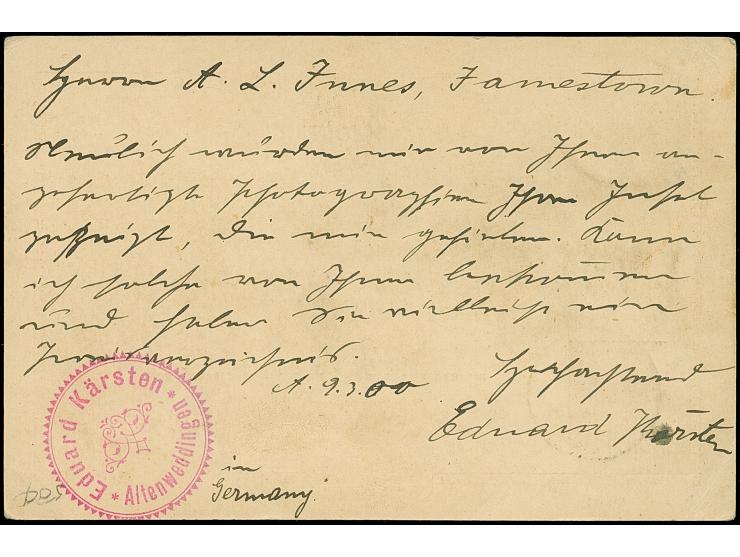 Herrn A. L. Innes, Jamestown.
Neulich wurden mir von Ihnen an-
gefertigte Photographien Ihrer Insel
gezeigt, die mir gefielen. Kann
ich solche von Ihnen bekommen
und haben Sie vielleicht ein
Preisverzeichnis.
A. 9.3.00
Hochachtend
Eduard Kärsten
in
Germany.
Eduard Kärsten * Altenweddingen *